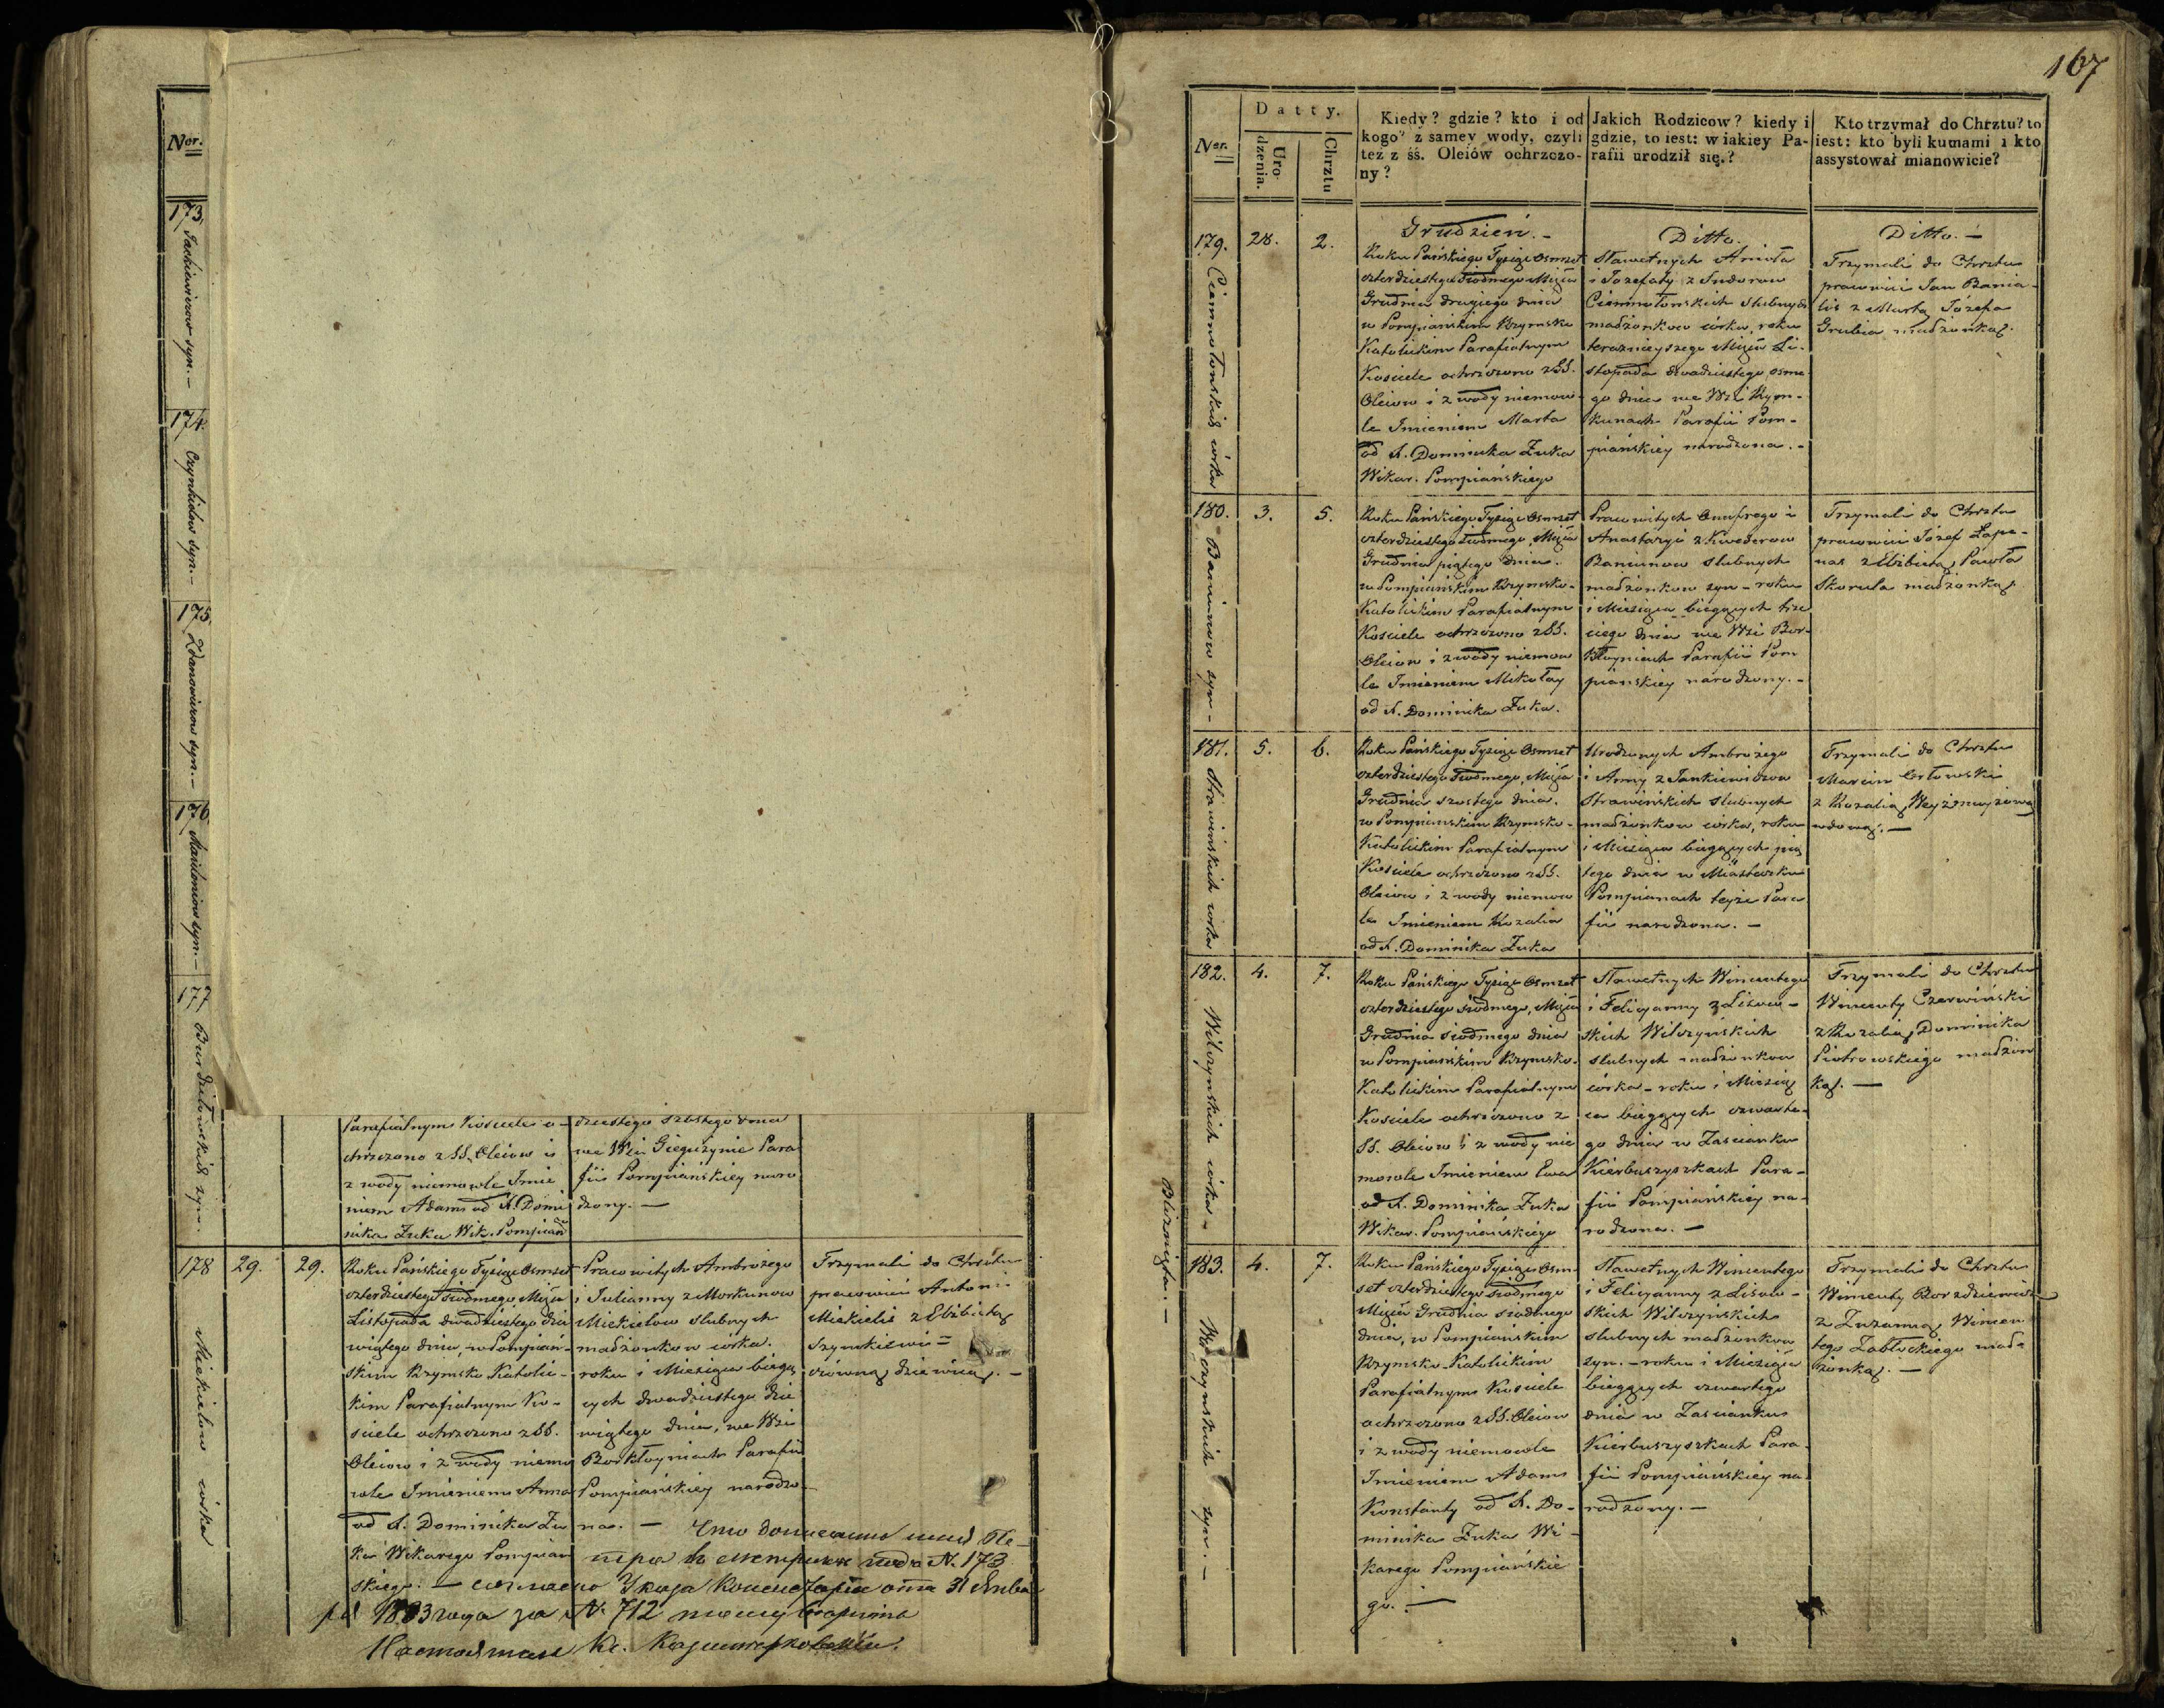 Ner.
173.
Jackiewiczow syn. —
174.
Czynkielow syn. —
175.
Zdanowiczow syn. —
176.
syn. —
177
syn. —
Parafialnym Kosciele o-
chrzczono z SS. Oleiow i
z wody niemowle Imie
niem Adam od X. Domi
nika Zuka Wik. Pompiań
dziestego szostego dnia
we Wsi Giegużynie Para
fii Pompiańskiey naro
dzony. —
178
29.
29.
Miekielow córka
Roku Pańskiego Tysiąc Osmset
czterdziestego siodmego Msąca
Listopada dwadziestego dzie
wiątego dnia, w Pompiań-
skim Rzymsko Katolic-
kim Parafialnym Ko-
sciele ochrzczono z SS.
Oleiow i z wody niemo
wle Imieniem Anna
od X. Dominika Zu
ka Wikarego Pompian
skiego. —
Pracowitych Ambrożego
i Julianny z Morkunow
Miekielow slubnych
madżonkow córka.
roku i Miesiąca biegą
cych dwadziestego dzie
wiątego dnia, we Wsi
Borkłoyniach Parafii
Pompiańskiey narodzo-
na. —
Trzymali do Chrztu
pracowici Antoni
Miekielis z Elżbietą
Szymkiewi=
czówną dziewicą. —
N. 173
31
1883 года за № 712
167
Ner.
Datty.
Uro-
dzenia.
Chrztu
Kiedy? gdzie? kto i od
kogo? z samey wody, czyli
też z śś. Oleiów ochrzczo-
ny?
Jakich Rodzicow? kiedy i
gdzie, to iest: w iakiey Pa-
rafii urodził się.?
Kto trzymał do Chrztu? to
iest: kto byli kumami i kto
assystował mianowicie?
179.
28.
2.
Ciemnołonskich córka
Grudzień. -
Roku Pańskiego Tysiąc Osmset
czterdziestego Siodmego Msąca
Grudnia drugiego dnia
w Pompiańskim Rzymsko
Katolickim Parafialnym
Kosciele ochrzczono z SS.
Oleiow i z wody niemow-
le Imieniem Marta
od X. Dominika Zuka
Wikar. Pompiańskiego
Ditto.
Sławetnych Anioła
i Jozefaty z Sudorow
Ciemnołonskich slubnych
madżonkow córka, roku
teraznieyszego Msąca Li-
stopada dwadziestego osme
go dnia we Wsi Rym-
kunach Parafii Pom-
piańskiey narodzona. -
Ditto. —
Trzymali do Chrztu
pracowici Jan Bania-
lis z Martą Józefa
Grubia madżonką.
180.
3.
5.
Baniunow syn -
Roku Pańskiego Tysiąc Osmset
czterdziestego siodmego, Msąca
Grudnia piątego dnia.
w Pompiańskim Rzymsko-
Katolickim Parafialnym
Kosciele ochrzczono z SS.
Oleiow i z wody niemow
le Imieniem Mikołay
od X. Dominika Zuka.
Pracowitych Onufrego i
Anastazyi z Kwederow
Baniunow slubnych
madżonkow syn - roku
i Miesiąca biegących trze
ciego dnia we Wsi Bor-
kłoyniach Parafii Pom
piańskiey narodzony. -
Trzymali do Chrztu
pracowici Józef Łape-
nas z Elżbietą Pawła
Skorula madżonką.
181.
5.
6.
Strawińskich córka
Roku Pańskiego Tysiąc Osmset
czterdziestego siodmego, Msąca
Grudnia szostego dnia.
w Pompianskim Rzymsko-
Katolickim Parafialnym
Kosciele ochrzczono z SS.
Oleiow i z wody niemow
le Imieniem Rozalia
od X. Dominika Zuka
Urodzonych Ambrożego
i Anny z Jankiewiczow
Strawińskich slubnych
madżonkow córka, roku
i Miesiąca biegących pią
tego dnia w Miasteczku
Pompianach teyże Para
fii narodzona. —
Trzymali do Chrztu
Marcin Orłowski
z Rozalią
wdową. —
182.
4.
7.
Wilczynskich córka -
Bliznięta. —
Roku Pańskiego Tysiąc Osmset
czterdziestego siodmego, Msąca
Grudnia siodmego dnia
w Pompianskim Rzymsko-
Katolickim Parafialnym
Kosciele ochrzczono z
SS. Oleiow i z wody nie
mowle Imieniem Ewa
od X. Dominika Zuka
Wikar. Pompiańskiego
Sławetnych Wincentego
i Felicyanny z Lisow-
skich Wilczyńskich
slubnych madżonkow
córka - roku i Miesią
ca biegących czwarte-
go dnia w Zascianku
Kierbuszyszkach Para-
fii Pompiańskiey na-
rodzona. —
Trzymali do Chrztu
Wincenty Czerwiński
z Rozalią Dominika
Piotrowskiego madżon
ką. —
183.
4.
7.
Wilczynskich syn. —
Roku Pańskiego Tysiąc Osm-
set czterdziestego siodmego
Msąca Grudnia siodmego
dnia, w Pompianskim
Rzymsko-Katolickim
Parafialnym Kosciele
ochrzczono z SS. Oleiow
i z wody niemowle
Imieniem Adam
Konstanty od X. Do-
minika Zuka Wi-
karego Pompiańskie
go. —
Sławetnych Wincentego
i Felicyanny z Lisow-
skich Wilczyńskich
slubnych madżonkow
syn. - roku i Miesiąca
biegących czwartego
dnia w Zascianku
Kierbuszyszkach Para-
fii Pompiańskiey na-
rodzony. —
Trzymali do Chrztu
Wincenty Borzdziewicz
z Zuzanną Wincen
tego Zabłockiego mad-
żonką. —